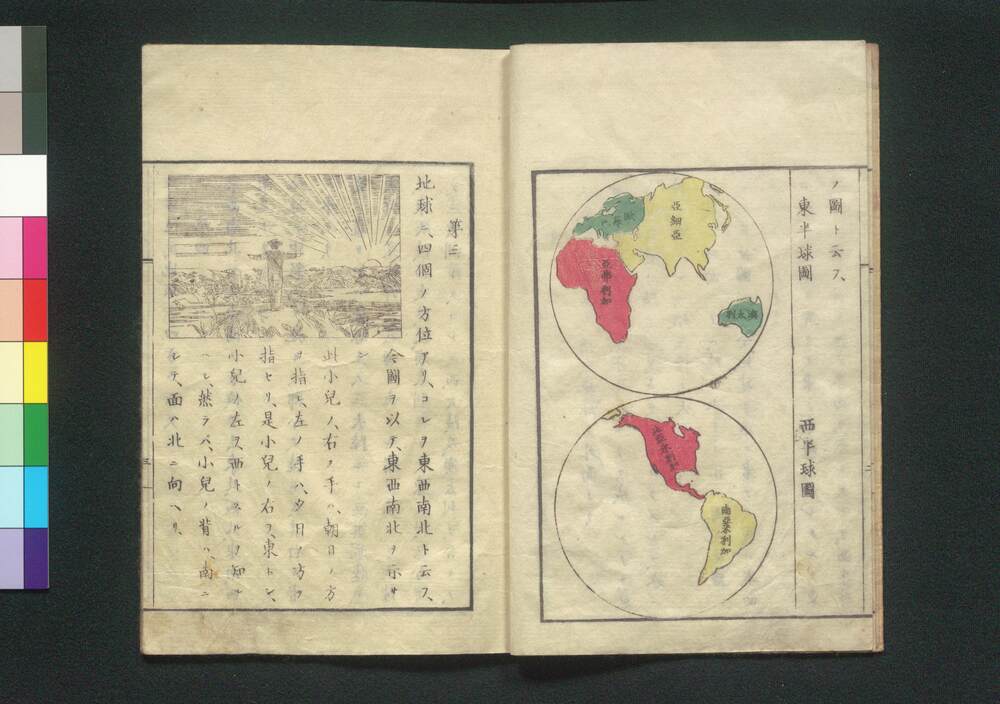 ノ圖ト云フ、
東半球圖
西半球圖
歐羅巴
亞細亞
亞弗利加
澳太利
北亞米利加
南亞米利加
第三
地球ニ、四個ノ方位アリ、コレヲ東西南北ト云フ、
今圖ヲ以テ、東西南北ヲ示サ
ン
此小兒ノ、右ノ手ハ、朝日ノ方
ヲ指シ、左ノ手ハ、夕日ノ方ヲ
指セリ、是小兒ノ右ヲ、東トシ、
小兒ノ左ヲ、西トスルヲ知ル
ヘシ、然ラバ、小兒ノ背ハ、南ニ
シテ、面ハ北ニ向ヘリ、
三